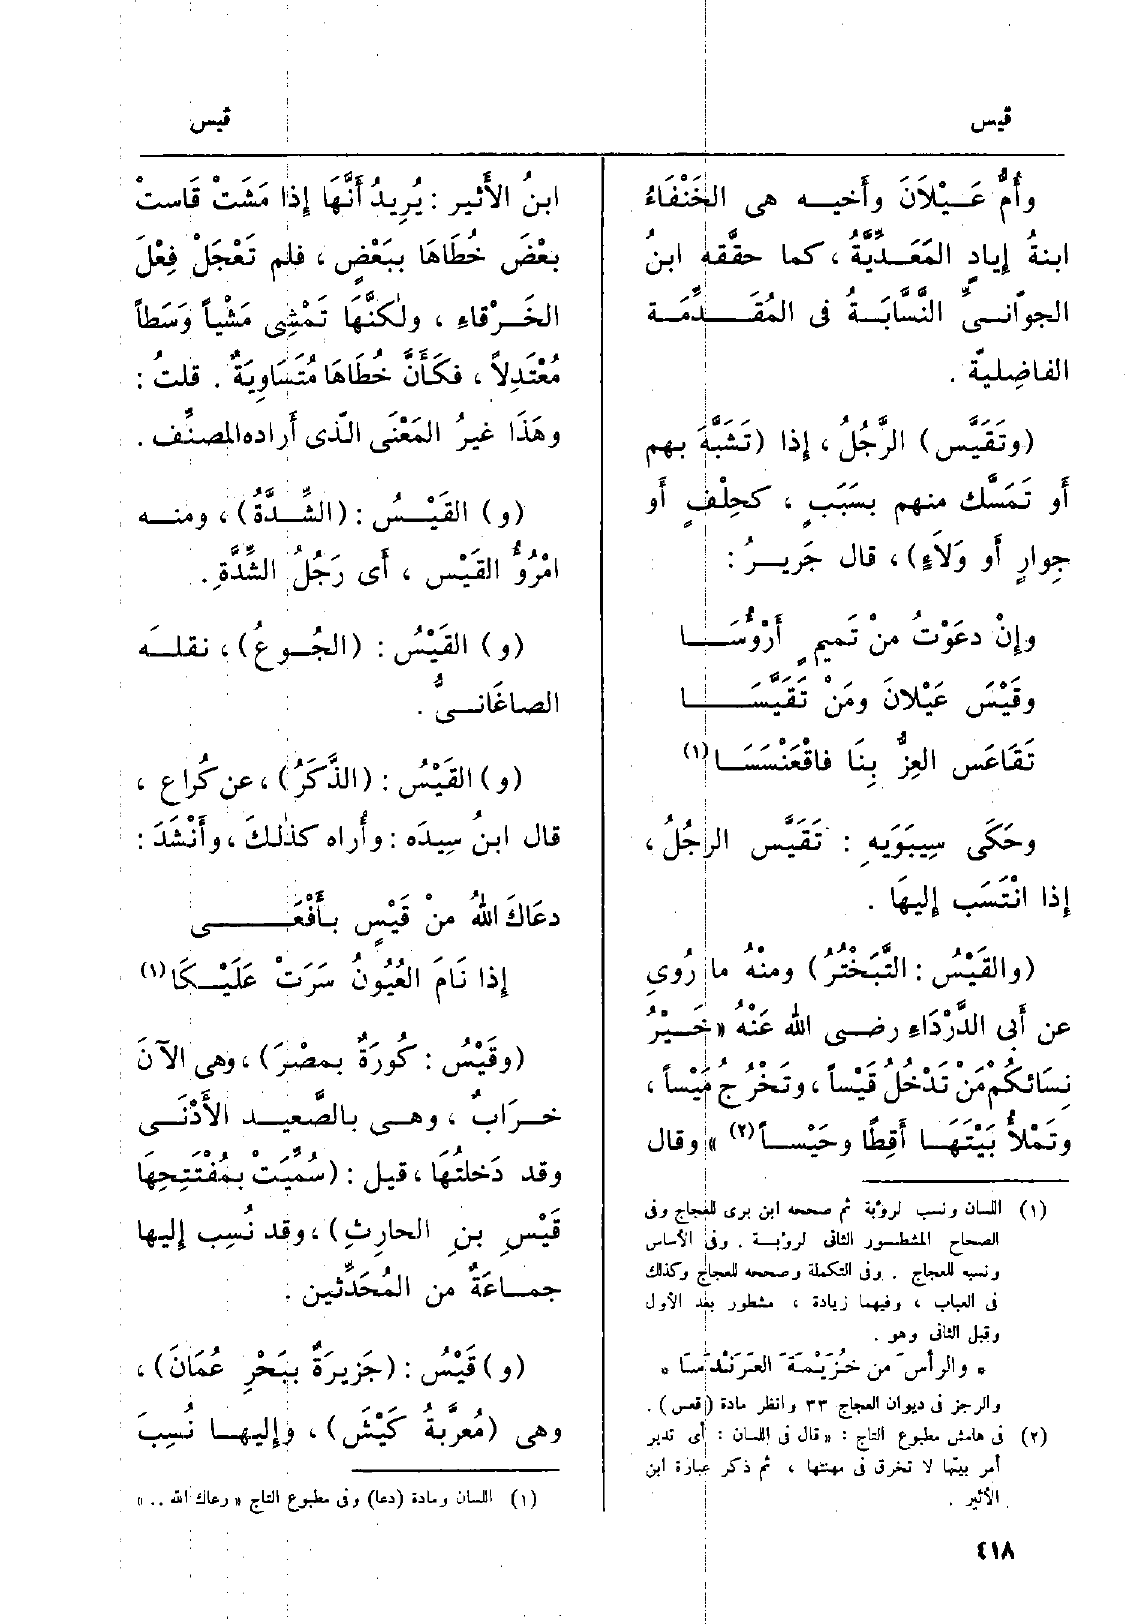 قيس
قيس
وأُمُّ عَيْلَانَ وأخيه هى الخَنْفَاءُ
ابنةُ إيادٍ المَعَدِّيَّةُ ، كما حقّقه ابنُ
الجوّانىِّ النَّسَّابَةُ فى المُقَدِّمَة
الفاضِليّة .
(وتَقَيَّس) الرَّجُلُ ، إذا (تَشَبَّهَ بهم
أو تَمَسَّك منهم بسَبَبٍ ، كحِلْفٍ أو
جِوارٍ أو وَلَاءٍ) ، قال جَرِيرُ :
وإنْ دعَوْتُ منْ تَميمٍ أَرْؤُسَا
وقَيْسَ عَيْلانَ ومَنْ تَقَيَّسَا
تَقَاعَس العِزُّ بِنَا فاقْعَنْسَسَا (١)
وحَكَى سِيبَوَيهِ : تَقَيَّس الرجُلُ ،
إذا انْتَسَب إليهَا .
(والقَيْسُ : التَّبَخْتُرُ) ومنهُ ما رُوِى
عن أَبى الدَّرْدَاءِ رضى الله عَنْهُ « خَيْرُ
نِسَائكُمْ مَنْ تَدْخُلُ قَيْساً ، وتَخْرُجُ مَيْساً ،
وتَمْلأُ بَيْتَهَا أَقِطًا وحَيْساً (٢) » وقال
(١) اللسان ونسب لرؤبة ثم صححه ابن برى للعجاج وفى
الصحاح المشطور الثانى لرؤبة . وفى الأساس
ونسبه للعجاج . وفى التكملة وصححه للعجاج وكذلك
فى العباب ، وفيهما زيادة ، مشطور بعد الأول
وقبل الثانى وهو .
* والرأسَ من خُزَيْمَةَ العَرَنْدَسَا *
والرجز فى ديوان العجاج ٣٣ وانظر مادة (قعس) .
(٢) فى هامش مطبوع التاج : « قال فى اللسان : أى تدير
أمر بيتها لا تخرق فى مهنتها ، ثم ذكر عبارة ابن
الأثير .
ابنُ الأَثير : يُرِيدُ أَنَّهَا إذا مَشَتْ قَاستْ
بعْضَ خُطَاهَا ببَعْضٍ ، فلم تَعْجَلْ فِعْلَ
الخَرْقاءِ ، ولٰكنَّهَا تَمْشِى مَشْياً وَسَطاً
مُعْتَدِلاً ، فكَأَنَّ خُطَاهَا مُتَسَاوِيَةٌ . قلتُ :
وهَذَا غيرُ المَعْنَى الّذى أَراده المصنِّف .
(و) القَيْسُ : (الشِّدَّةُ) ، ومنه
امْرُؤُ القَيْس ، أَى رَجُلُ الشِّدَّةِ .
(و) القَيْسُ : (الجُوعُ) ، نقلَه
الصاغَانىُّ .
(و) القَيْسُ : (الذَّكَرُ) ، عن كُراع ،
قال ابنُ سِيدَه : وأُراه كذٰلكَ ، وأَنْشَدَ :
دعَاكَ اللهُ منْ قَيْسٍ بأَفْعَى
إذا نَامَ العُيُونُ سَرَتْ عَلَيْكَا (١)
(وقَيْسُ : كُورَةٌ بمصْرَ) ، وهى الآنَ
خرَابٌ ، وهى بالصَّعيد الأَدْنَى
وقد دَخلتُهَا ، قيل : (سُمِّيَتْ بمُفْتَتِحِهَا
قَيْسِ بنِ الحارِثِ) ، وقد نُسِب إليها
جماعَةٌ من المُحَدِّثين .
(و) قَيْسُ : (جَزِيرَةٌ ببَحْرِ عُمَانَ) ،
وهى (مُعرَّبةُ كَيْشَ) ، وإليها نُسِبَ
(١) اللسان ومادة (دعا) وفى مطبوع التاج « رعاك الله .. »
٤١٨